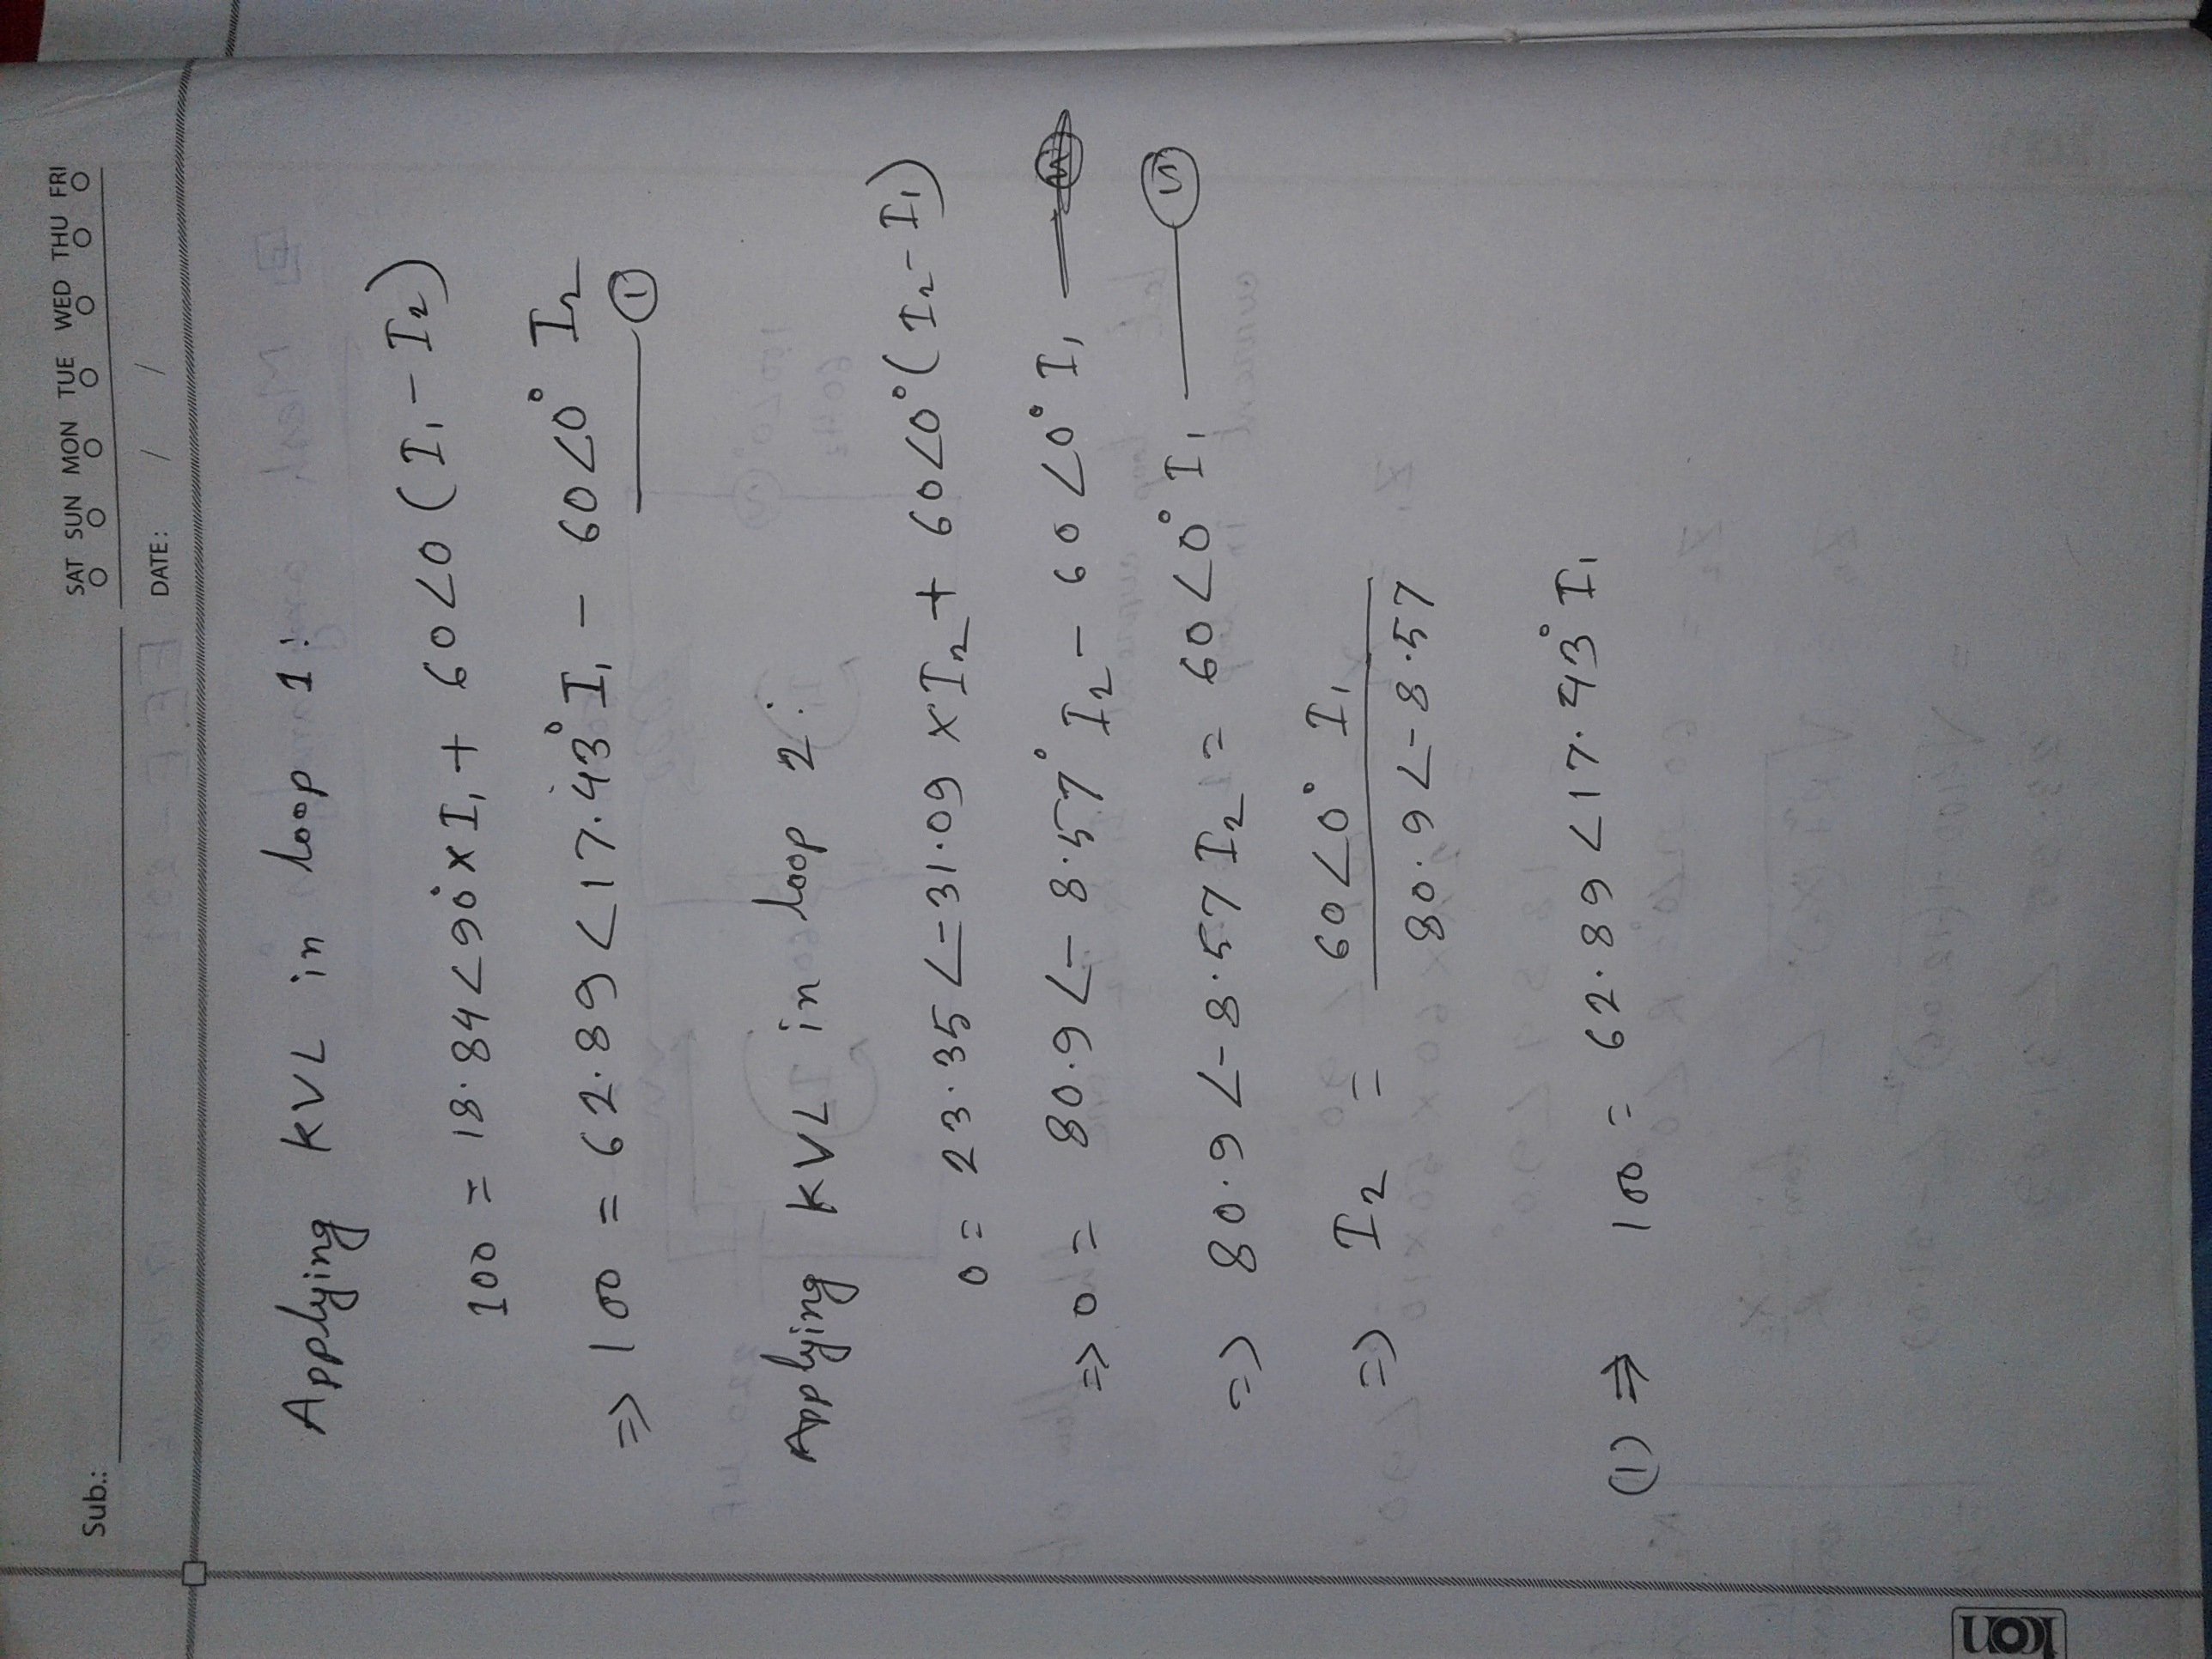 Sub.:
SAT SUN MON TUE WED THU FRI
DATE: / /
Applying KVL in loop 1:
100 = 18.84∠90° × I₁ + 60∠0 (I₁ - I₂)
⇒ 100 = 62.89∠17.43° I₁ - 60∠0° I₂
——— ①
Applying KVL in loop 2:
0 = 23.35∠-31.09 × I₂ + 60∠0° (I₂ - I₁)
⇒ 0 = 80.9∠-8.57° I₂ - 60∠0° I₁
⇒ 80.9∠-8.57 I₂ = 60∠0° I₁ ———
⇒ I₂ = 60∠0° I₁
80.9∠-8.57
(1) ⇒ 100 = 62.89∠17.43° I₁